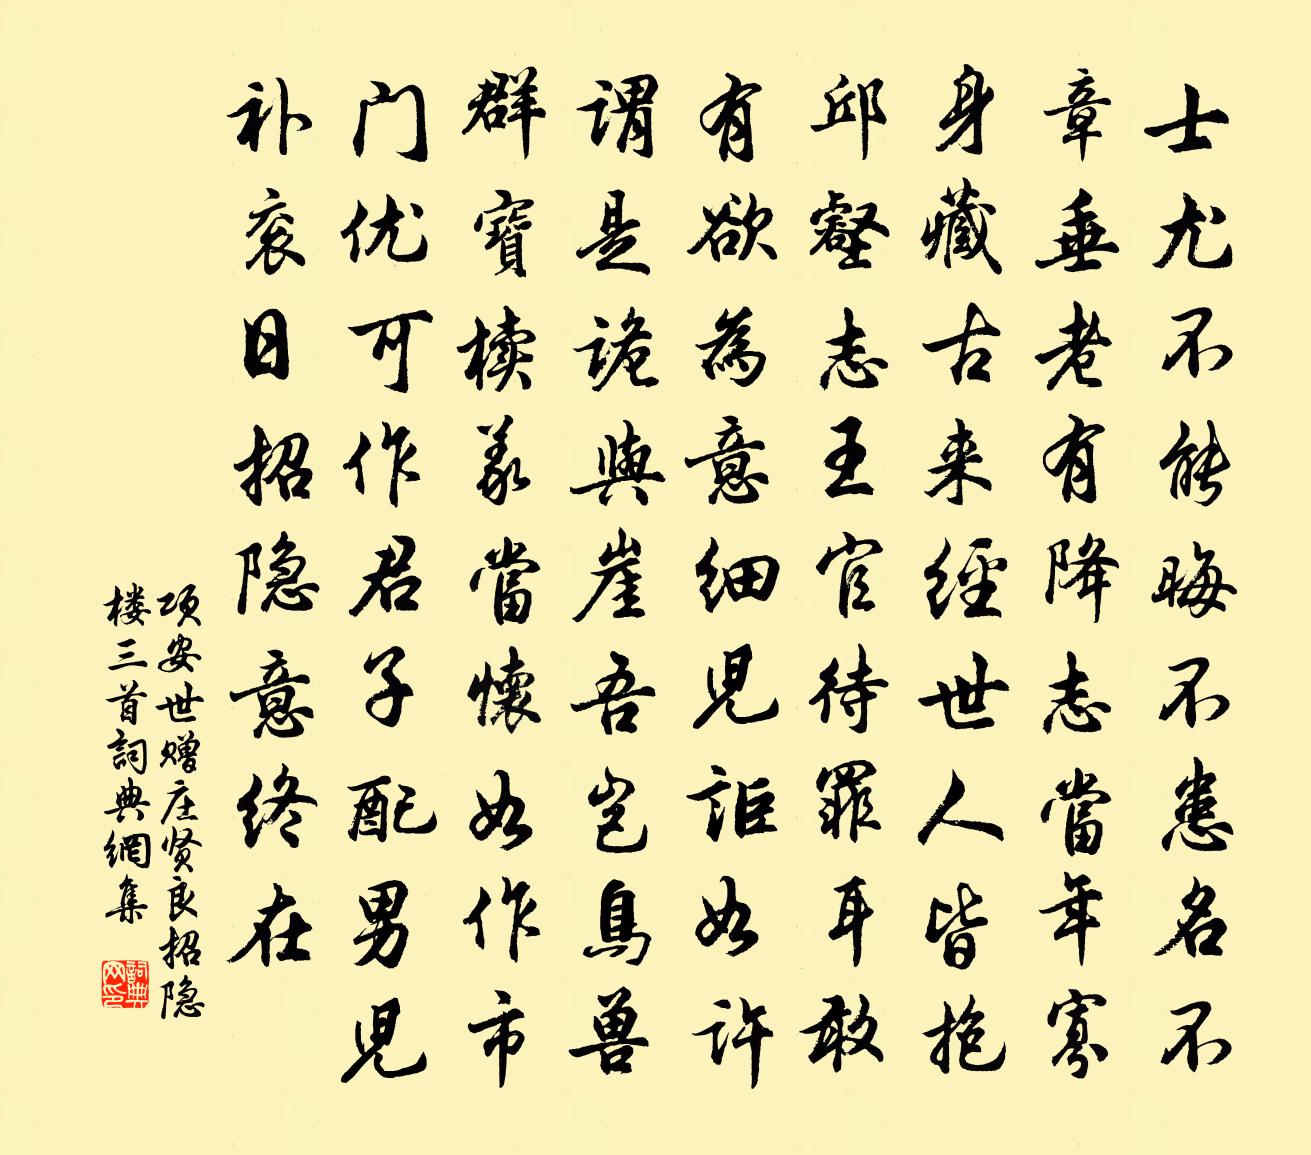 士尤不能晦不患名不
章垂老有降志當年寡
身藏古来經世人皆抱
邱壑志王官待罪耳敢
有欲為意細児詎如許
謂是詭與崖吾豈鳥兽
群寶櫝義當懷如作市
门优可作君子配男児
补衮日招隐意终在
项安世赠庄贤良招隐
楼三首詞典網集
詞典网印